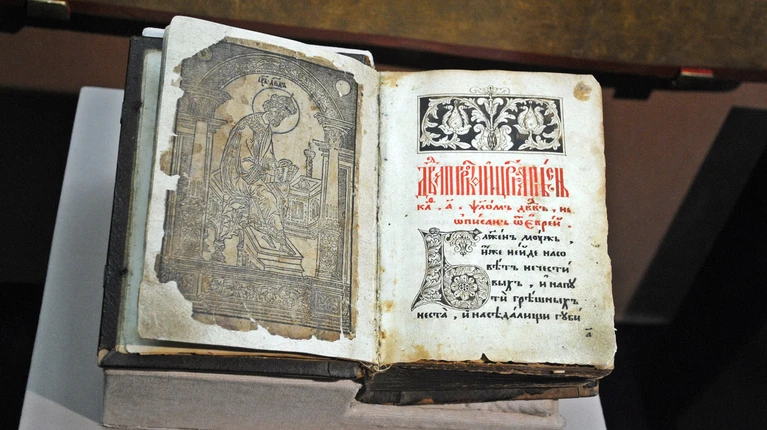 црь двдъ
каѳ . а . ѱалом двдъ , не
ѡписанъ ѿ еврей .
Блаженъ моужь ,
иже нейде насо
вѣтъ нечести
выхъ , и напу
ти грѣшныхъ
неста , и насѣдалищи губи
а